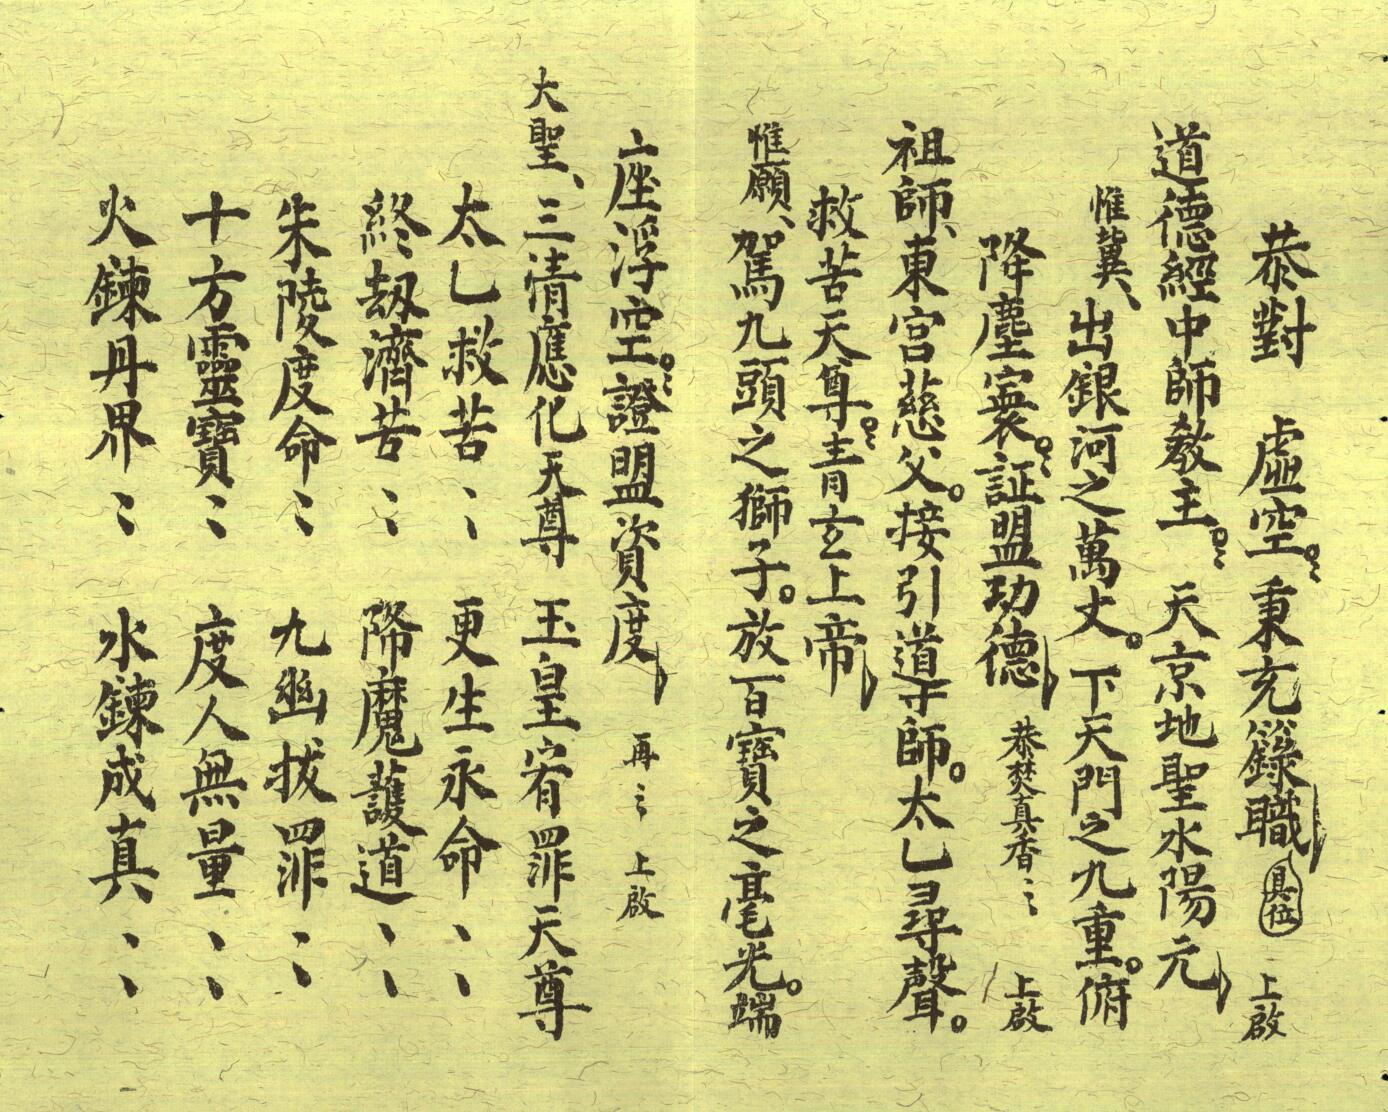 恭對　虛空。秉充籙職　具位　上啟
道德經中師教主。天京地聖水陽元
惟冀、出銀河之萬丈。下天門之九重。俯
降塵寰。証盟功德　恭焚真香〻　上啟
祖師、東宮慈父。接引導師。太乙尋聲。
救苦天尊。青玄上帝
惟願、駕九頭之獅子。放百寶之毫光。端
座浮空。證盟資度　再〻　上啟
大聖、三清應化天尊　玉皇宥罪天尊
太乙救苦〻　更生永命〻
終劫濟苦〻　降魔護道〻
朱陵度命〻　九幽拔罪〻
十方靈寶〻　度人無量〻
火鍊丹界〻　水鍊成真〻